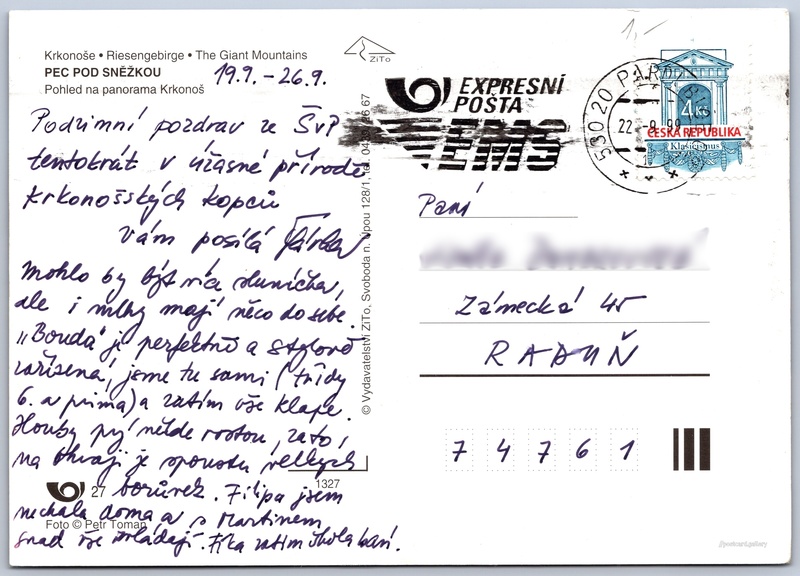 Krkonoše • Riesengebirge • The Giant Mountains
PEC POD SNĚŽKOU
Pohled na panorama Krkonoš
19.9. – 26.9.
Podzimní pozdrav ze ŠvP
tentokrát v úžasné přírodě
krkonošských kopců
Vám posílá
Mohlo by být více sluníčka,
ale i mlhy mají něco do sebe.
„Bouda" je perfektně a stylově
zařízená, jsme tu sami (třídy
6. a prima) a zatím vše klape.
Houby prý někde rostou, zato
na je spoustu velkých
borůvek. Filipa jsem
nechala doma a s Martinem
snad vše zvládají. zatím škola baví.
27
1327
Foto © Petr Toman
ZiTo
© Vydavatelství ZiTo, Svoboda n. Úpou 128/1, tel. 67
1,-
EXPRESNÍ
POŠTA
EMS
530 20 PARD
22 -9 99
4 Kč
ČESKÁ REPUBLIKA
Klasicismus
Paní
Zámecká 45
RADUŇ
7 4 7 6 1
postcard.gallery